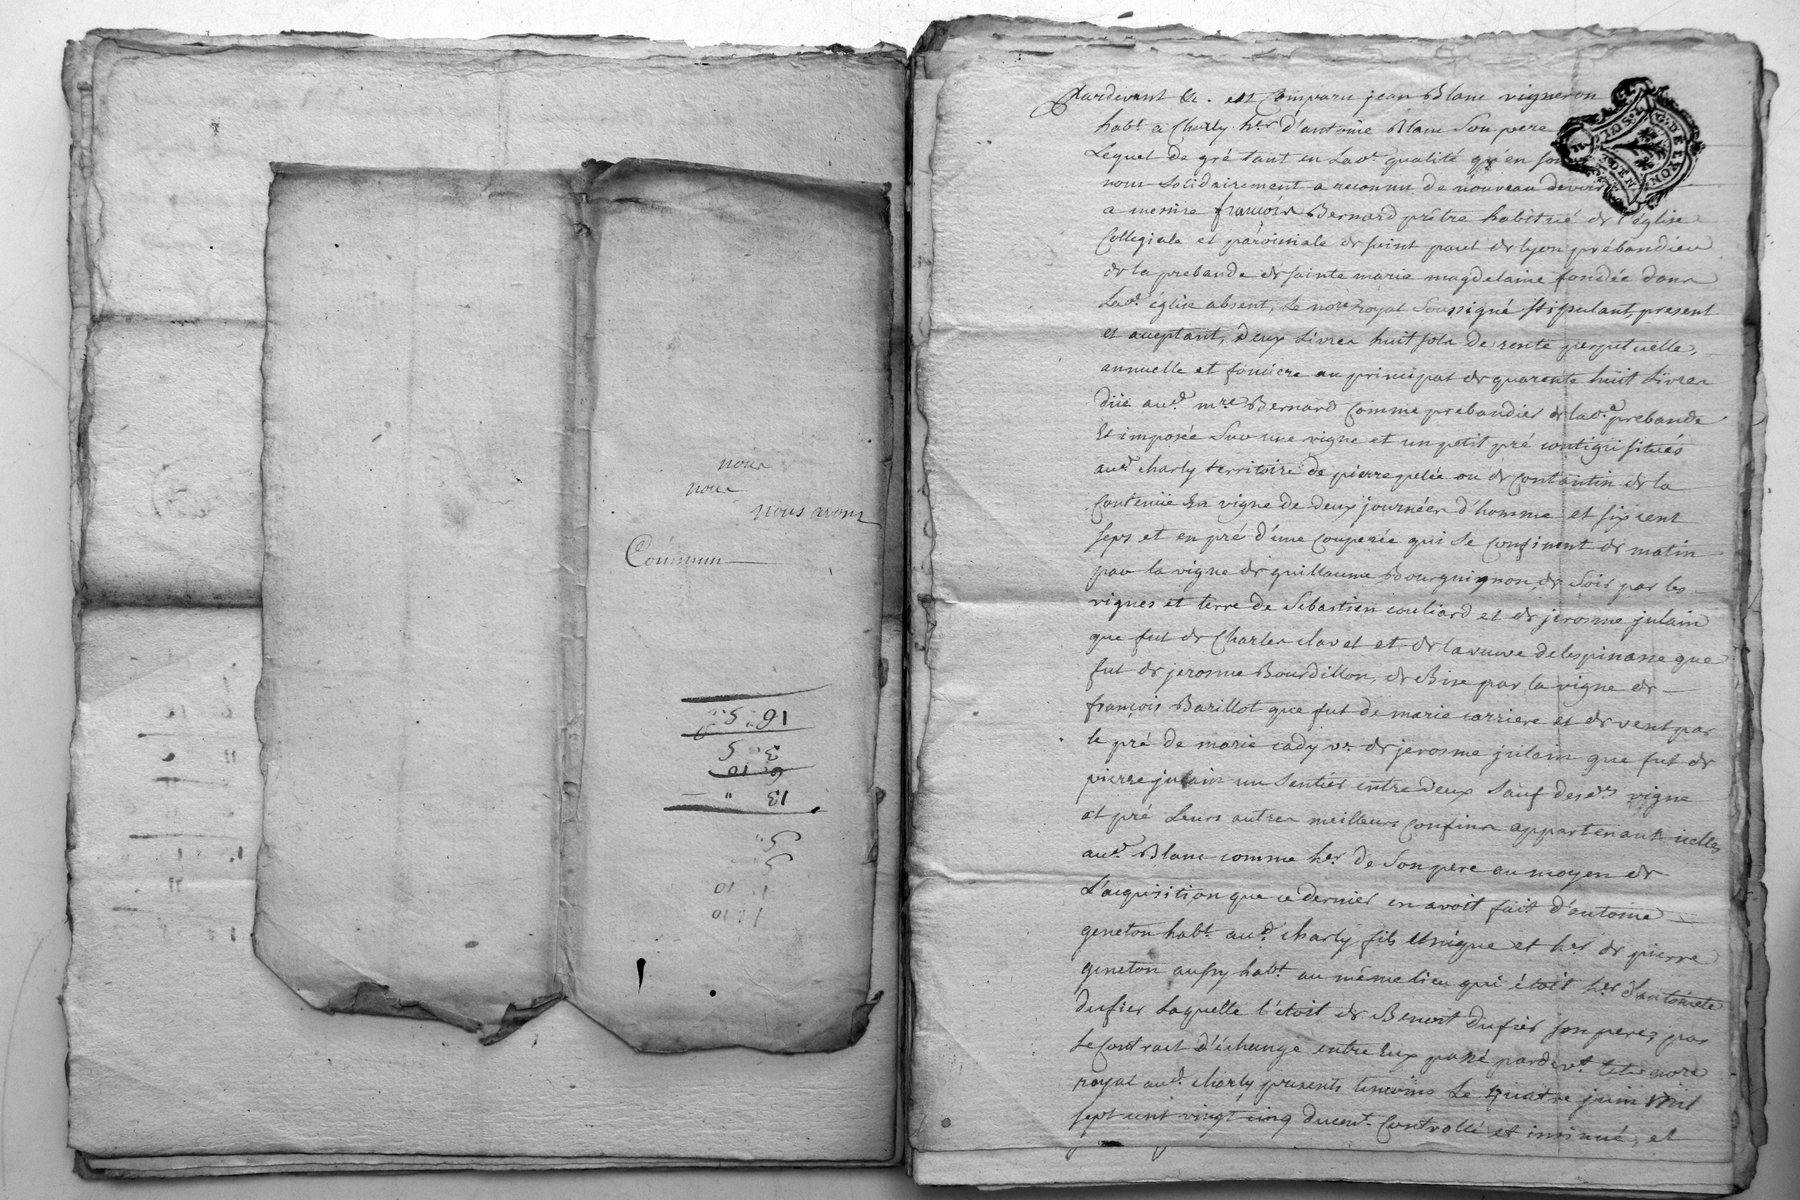 nous
nous
nous avons
Commun
Pardevant &c. est Comparu jean Blanc vigneron
habt. a Charly her. d'antoine Blanc Son pere
Lequel de gré tant en Lad. qualité qu'en son
nom Solidairement a reconnu de nouveau devoir
a messire françois Bernard prêtre habitué de l'église
Collegiale et paroissiale de saint paul de lyon prébandier
de la prebande de sainte marie magdelaine fondée dans
Lad. église absent, Le nore. royal Soussigné stipulant, present
et aceptant, deux Livres huit sols de rente perpetuelle,
annuelle et fonciere au principal de quarente huit Livres
düe aud. mre Bernard Comme prebandier de lad. prebande
Et imposée Sur une vigne et un petit pré contigu situés
aud. charly territoire de pierre pelée ou de Contantin de la
Contenüe En vigne de deux journées d'homme et six cent
seps et en pré d'une Couperée qui Se Confinent de matin
par la vigne de guillaume Bourguignon, de Soir par les
vignes et terre de Sebastien couliard et de jerosme julain
que fut de Charles clavel et de la veuve delespinasse que
fut de jerosme Bourdillon, de Bise par la vigne de
françois Barillot que fut de marie carriere et de vent par
le pré de marie cady ve. de jerosme julain que fut de
pierre julain un Sentier entre deux Sauf desds. vigne
et pré Leurs autres meilleurs Confins appartenant icelles
aud. Blanc comme her. de Son pere au moyen de
L'acquisition que ce dernier en avoit fait d'antoine
geneton habt. aud. charly fils Unique et her. de pierre
geneton aussy habt. au même lieu qui étoit her. d'antoinete
dufier Laquelle l'étoit de Benoit dufier son pere, par
Le Contract d'échange entre Eux passé pardevt. nore
royal aud. charly presents temoins Le quatre juin Mil
sept cent vingt cinq ducmt. Controllé et insinué, et
16 5
3 5
6 10
13 "
5
5
1 10
1 10
G. DE LYON